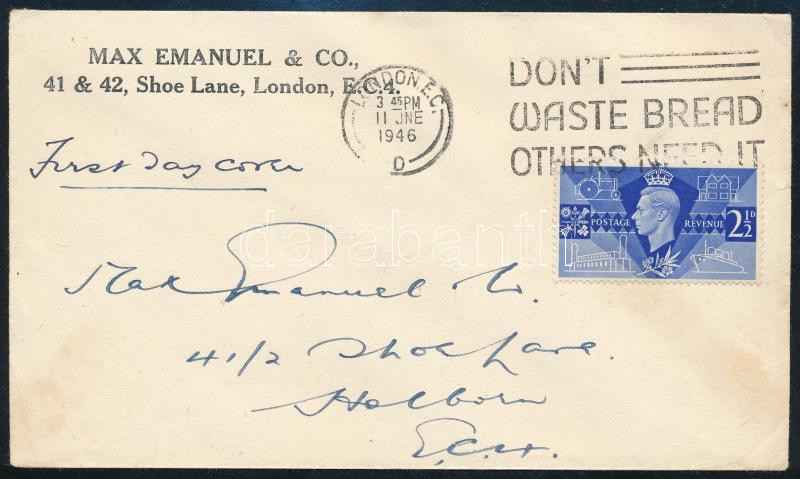 MAX EMANUEL & CO.,
41 & 42, Shoe Lane, London, E.C.4.
LONDON.E.C.
3 45 PM
11 JNE
1946
D
DON'T
WASTE BREAD
OTHERS NEED IT
First day cover
POSTAGE REVENUE 2½D
Max Emanuel Co.
41/2 Shoe Lane.
Holborn
E.C.4.
darabanth